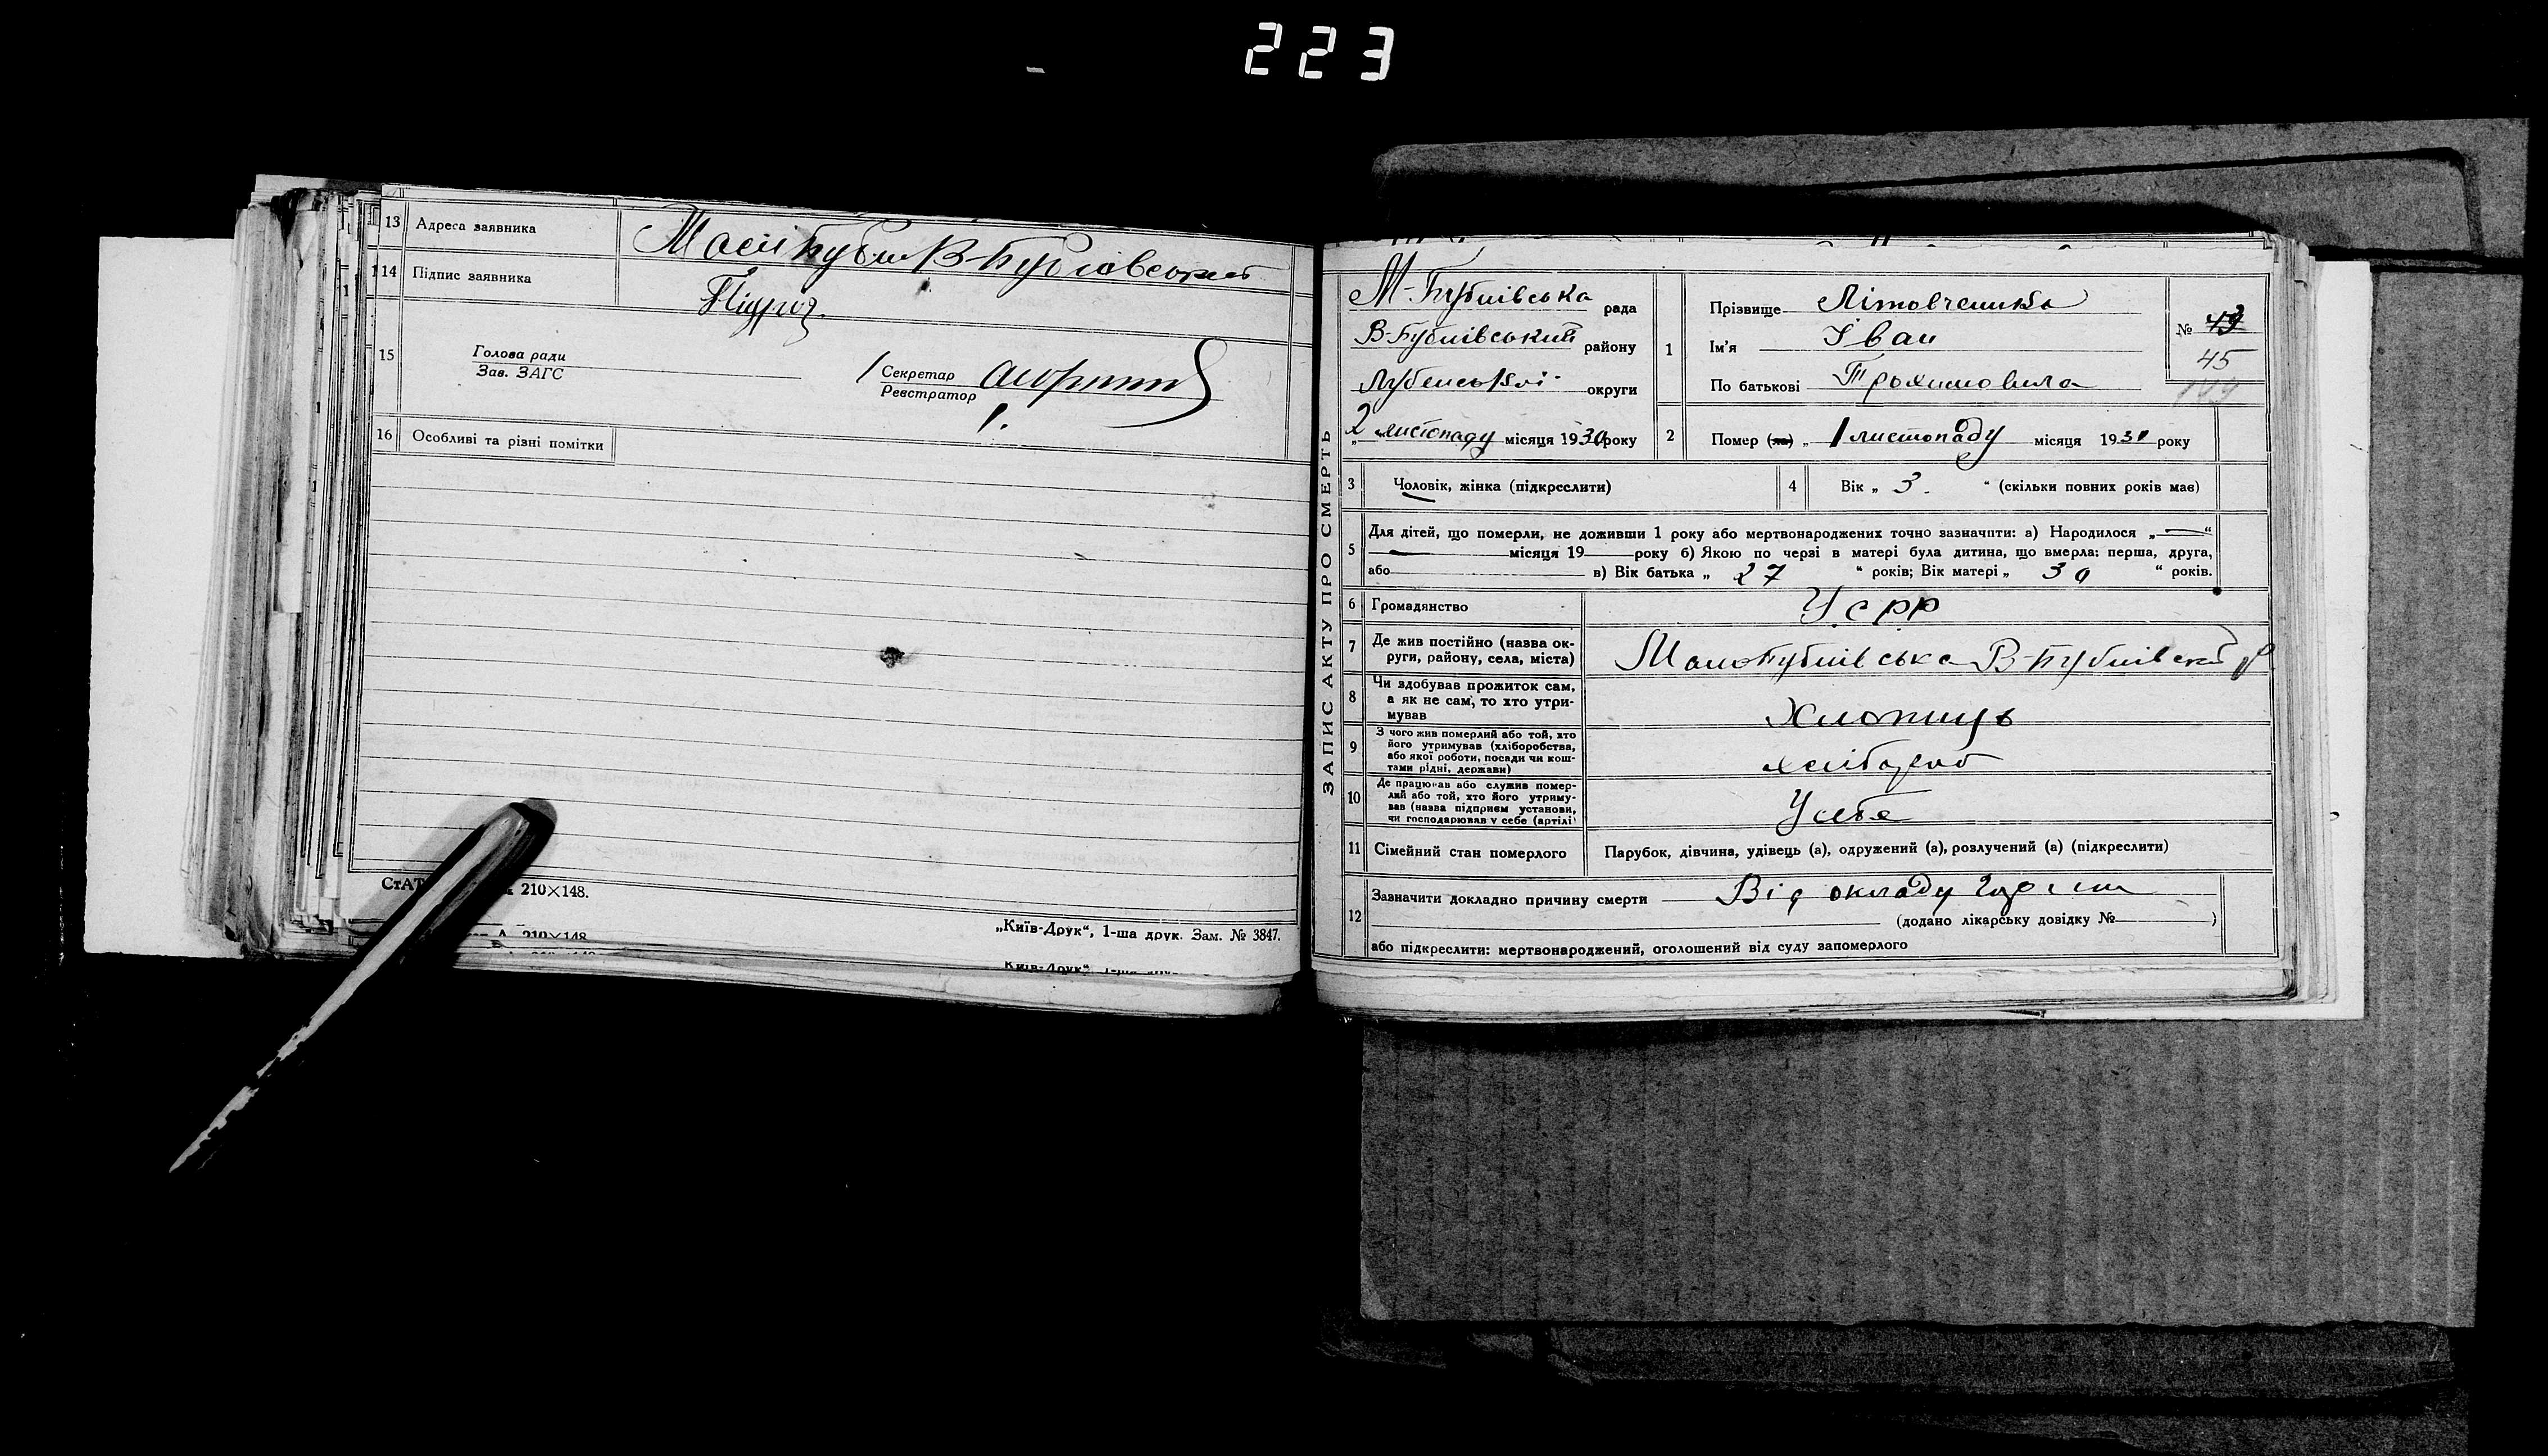 223
13 Адреса заявника
14 Підпис заявника
15 Голова ради
Зав. ЗАГС
Секретар
Реєстратор
16 Особливі та різні помітки
210×148.
„Київ-Друк“, 1-ша друк. Зам. № 3847.
ЗАПИС АКТУ ПРО СМЕРТЬ
М-Бубнівська рада
В-Бубнівський району
Лубенської округи
„2 листопаду місяця 1930 року
1 Прізвище Літовченко
Ім'я Іван
По батькові Трохимовича
№ 49
45
2 Помер (ла) „1 листопаду місяця 1930 року
3 Чоловік, жінка (підкреслити)
4 Вік „ 3. “ (скільки повних років має)
5 Для дітей, що померли, не доживши 1 року або мертвонароджених точно зазначити: а) Народилося „—“
місяця 19 року б) Якою по черзі в матері була дитина, що вмерла: перша, друга,
або в) Вік батька „ 27 “ років; Вік матері „ 30 “ років.
6 Громадянство УСРР
7 Де жив постійно (назва ок-
руги, району, села, міста)
В-Бубнівськ
8 Чи здобував прожиток сам,
а як не сам, то хто утри-
мував
Хлопиць
9 З чого жив померлий або той, хто
його утримував (хліборобства,
або якої роботи, посади чи кош-
тами рідні, держави)
хлібороб
10 Де працював або служив помер-
лий або той, хто його утриму-
вав (назва підприєм установи,
чи господарював у себе (артілі)
У себе
11 Сімейний стан померлого Парубок, дівчина, удівець (а), одружений (а), розлучений (а) (підкреслити)
12 Зазначити докладно причину смерти Від окладу
(додано лікарську довідку № )
або підкреслити: мертвонароджений, оголошений від суду запомерлого